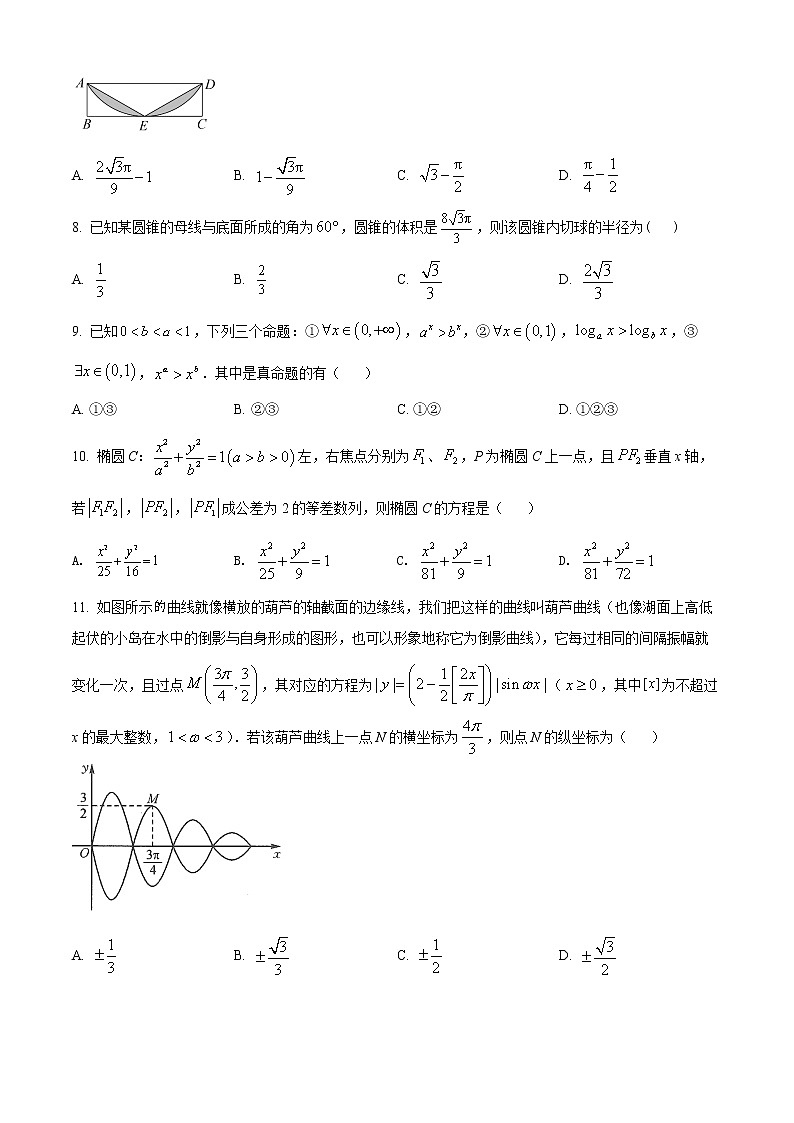 A D
B E C
A. 2√3π/9−1 B. 1−√3π/9 C. √3−π/2 D. π/4−1/2
8. 已知某圆锥的母线与底面所成的角为60°,圆锥的体积是8√3π/3,则该圆锥内切球的半径为( )
A. 1/3 B. 2/3 C. √3/3 D. 2√3/3
9. 已知0<b<a<1,下列三个命题:①∀x∈(0,+∞),aˣ>bˣ,②∀x∈(0,1),logₐx>log_b x,③
∃x∈(0,1),x^a>x^b.其中是真命题的有( )
A. ①③ B. ②③ C. ①② D. ①②③
10. 椭圆C:x²/a²+y²/b²=1(a>b>0)左,右焦点分别为F₁、F₂,P为椭圆C上一点,且PF₂垂直x轴,
若|F₁F₂|,|PF₂|,|PF₁|成公差为2的等差数列,则椭圆C的方程是( )
A. x²/25+y²/16=1 B. x²/25+y²/9=1 C. x²/81+y²/9=1 D. x²/81+y²/72=1
11. 如图所示的曲线就像横放的葫芦的轴截面的边缘线,我们把这样的曲线叫葫芦曲线(也像湖面上高低
起伏的小岛在水中的倒影与自身形成的图形,也可以形象地称它为倒影曲线),它每过相同的间隔振幅就
变化一次,且过点M(3π/4,3/2),其对应的方程为|y|=(2−1/2[2x/π])|sin ωx|(x≥0,其中[x]为不超过
x的最大整数,1<ω<3).若该葫芦曲线上一点N的横坐标为4π/3,则点N的纵坐标为( )
y
3/2 M
O 3π/4 x
A. ±1/3 B. ±√3/3 C. ±1/2 D. ±√3/2